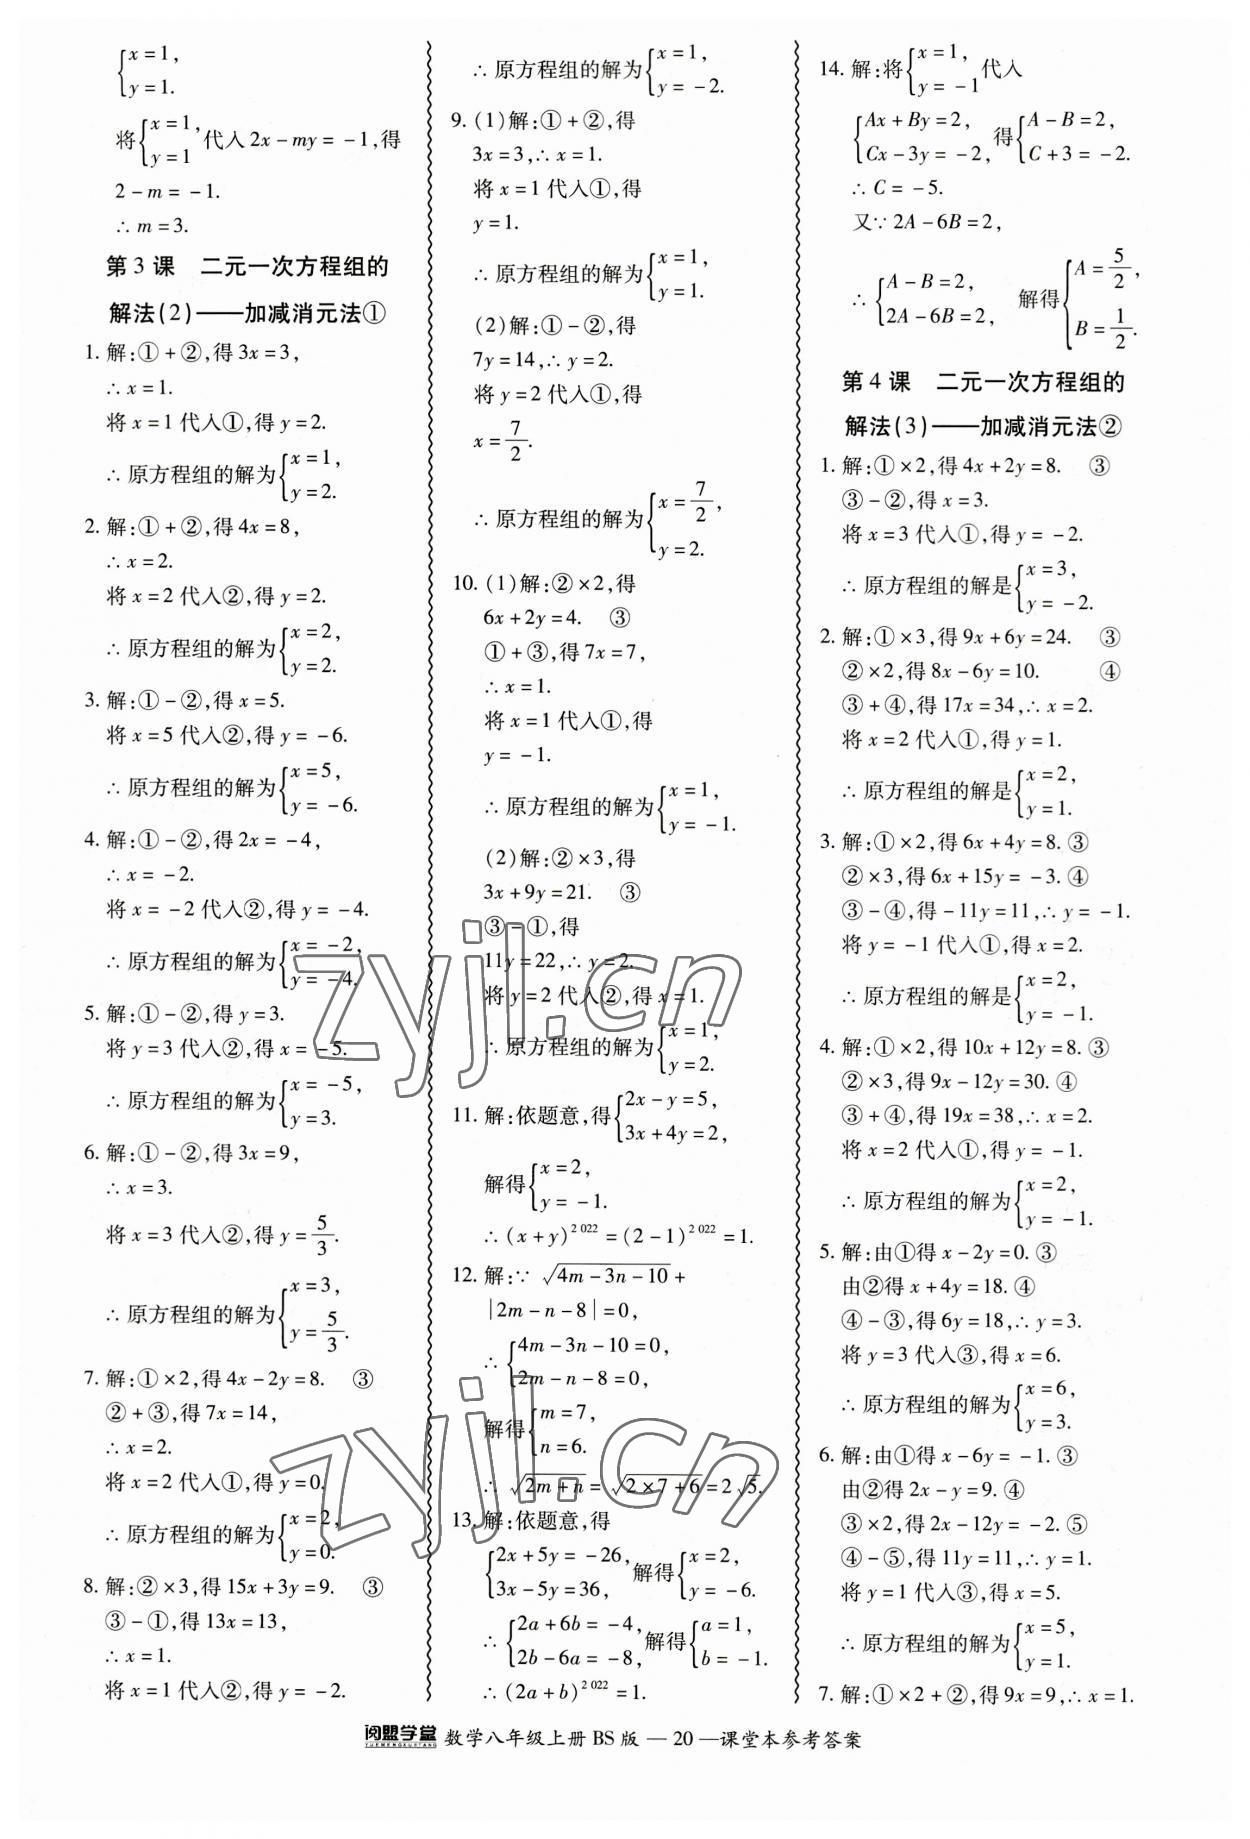 {x=1,
y=1.
将{x=1, y=1 代入2x-my=-1,得
2-m=-1.
∴m=3.
第3课 二元一次方程组的
解法(2)——加减消元法①
1. 解:①+②,得3x=3,
∴x=1.
将x=1代入①,得y=2.
∴原方程组的解为{x=1, y=2.
2. 解:①+②,得4x=8,
∴x=2.
将x=2代入②,得y=2.
∴原方程组的解为{x=2, y=2.
3. 解:①-②,得x=5.
将x=5代入②,得y=-6.
∴原方程组的解为{x=5, y=-6.
4. 解:①-②,得2x=-4,
∴x=-2.
将x=-2代入②,得y=-4.
∴原方程组的解为{x=-2, y=-4.
5. 解:①-②,得y=3.
将y=3代入②,得x=-5.
∴原方程组的解为{x=-5, y=3.
6. 解:①-②,得3x=9,
∴x=3.
将x=3代入②,得y=5/3.
∴原方程组的解为{x=3, y=5/3.
7. 解:①×2,得4x-2y=8. ③
②+③,得7x=14,
∴x=2.
将x=2代入①,得y=0.
∴原方程组的解为{x=2, y=0.
8. 解:②×3,得15x+3y=9. ③
③-①,得13x=13,
∴x=1.
将x=1代入②,得y=-2.
∴原方程组的解为{x=1, y=-2.
9. (1)解:①+②,得
3x=3,∴x=1.
将x=1代入①,得
y=1.
∴原方程组的解为{x=1, y=1.
(2)解:①-②,得
7y=14,∴y=2.
将y=2代入①,得
x=7/2.
∴原方程组的解为{x=7/2, y=2.
10. (1)解:②×2,得
6x+2y=4. ③
①+③,得7x=7,
∴x=1.
将x=1代入①,得
y=-1.
∴原方程组的解为{x=1, y=-1.
(2)解:②×3,得
3x+9y=21. ③
③-①,得
11y=22,∴y=2.
将y=2代入②,得x=1.
∴原方程组的解为{x=1, y=2.
11. 解:依题意,得{2x-y=5, 3x+4y=2,
解得{x=2, y=-1.
∴(x+y)^2022=(2-1)^2022=1.
12. 解:∵√(4m-3n-10)+
|2m-n-8|=0,
∴{4m-3n-10=0, 2m-n-8=0,
解得{m=7, n=6.
∴√(2m+n)=√(2×7+6)=2√5.
13. 解:依题意,得
{2x+5y=-26, 3x-5y=36, 解得{x=2, y=-6.
∴{2a+6b=-4, 2b-6a=-8, 解得{a=1, b=-1.
∴(2a+b)^2022=1.
14. 解:将{x=1, y=-1 代入
{Ax+By=2, Cx-3y=-2, 得{A-B=2, C+3=-2.
∴C=-5.
又∵2A-6B=2,
∴{A-B=2, 2A-6B=2, 解得{A=5/2, B=1/2.
第4课 二元一次方程组的
解法(3)——加减消元法②
1. 解:①×2,得4x+2y=8. ③
③-②,得x=3.
将x=3代入①,得y=-2.
∴原方程组的解是{x=3, y=-2.
2. 解:①×3,得9x+6y=24. ③
②×2,得8x-6y=10. ④
③+④,得17x=34,∴x=2.
将x=2代入①,得y=1.
∴原方程组的解是{x=2, y=1.
3. 解:①×2,得6x+4y=8. ③
②×3,得6x+15y=-3. ④
③-④,得-11y=11,∴y=-1.
将y=-1代入①,得x=2.
∴原方程组的解是{x=2, y=-1.
4. 解:①×2,得10x+12y=8. ③
②×3,得9x-12y=30. ④
③+④,得19x=38,∴x=2.
将x=2代入①,得y=-1.
∴原方程组的解为{x=2, y=-1.
5. 解:由①得x-2y=0. ③
由②得x+4y=18. ④
④-③,得6y=18,∴y=3.
将y=3代入③,得x=6.
∴原方程组的解为{x=6, y=3.
6. 解:由①得x-6y=-1. ③
由②得2x-y=9. ④
③×2,得2x-12y=-2. ⑤
④-⑤,得11y=11,∴y=1.
将y=1代入③,得x=5.
∴原方程组的解为{x=5, y=1.
7. 解:①×2+②,得9x=9,∴x=1.
zyjl.cn
zyjl.cn
阅盟学堂 YUEMENGXUETANG 数学八年级上册BS版—20—课堂本参考答案